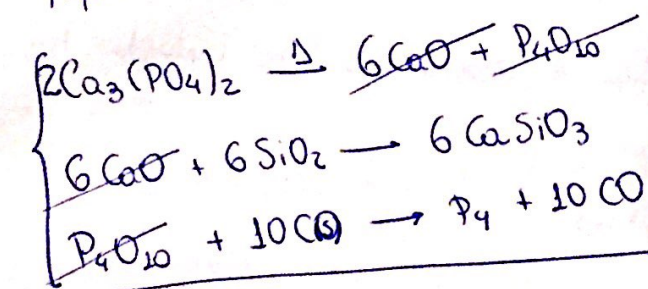 2Ca₃(PO₄)₂ —Δ→ 6CaO + P₄O₁₀
6CaO + 6SiO₂ → 6CaSiO₃
P₄O₁₀ + 10C(s) → P₄ + 10CO